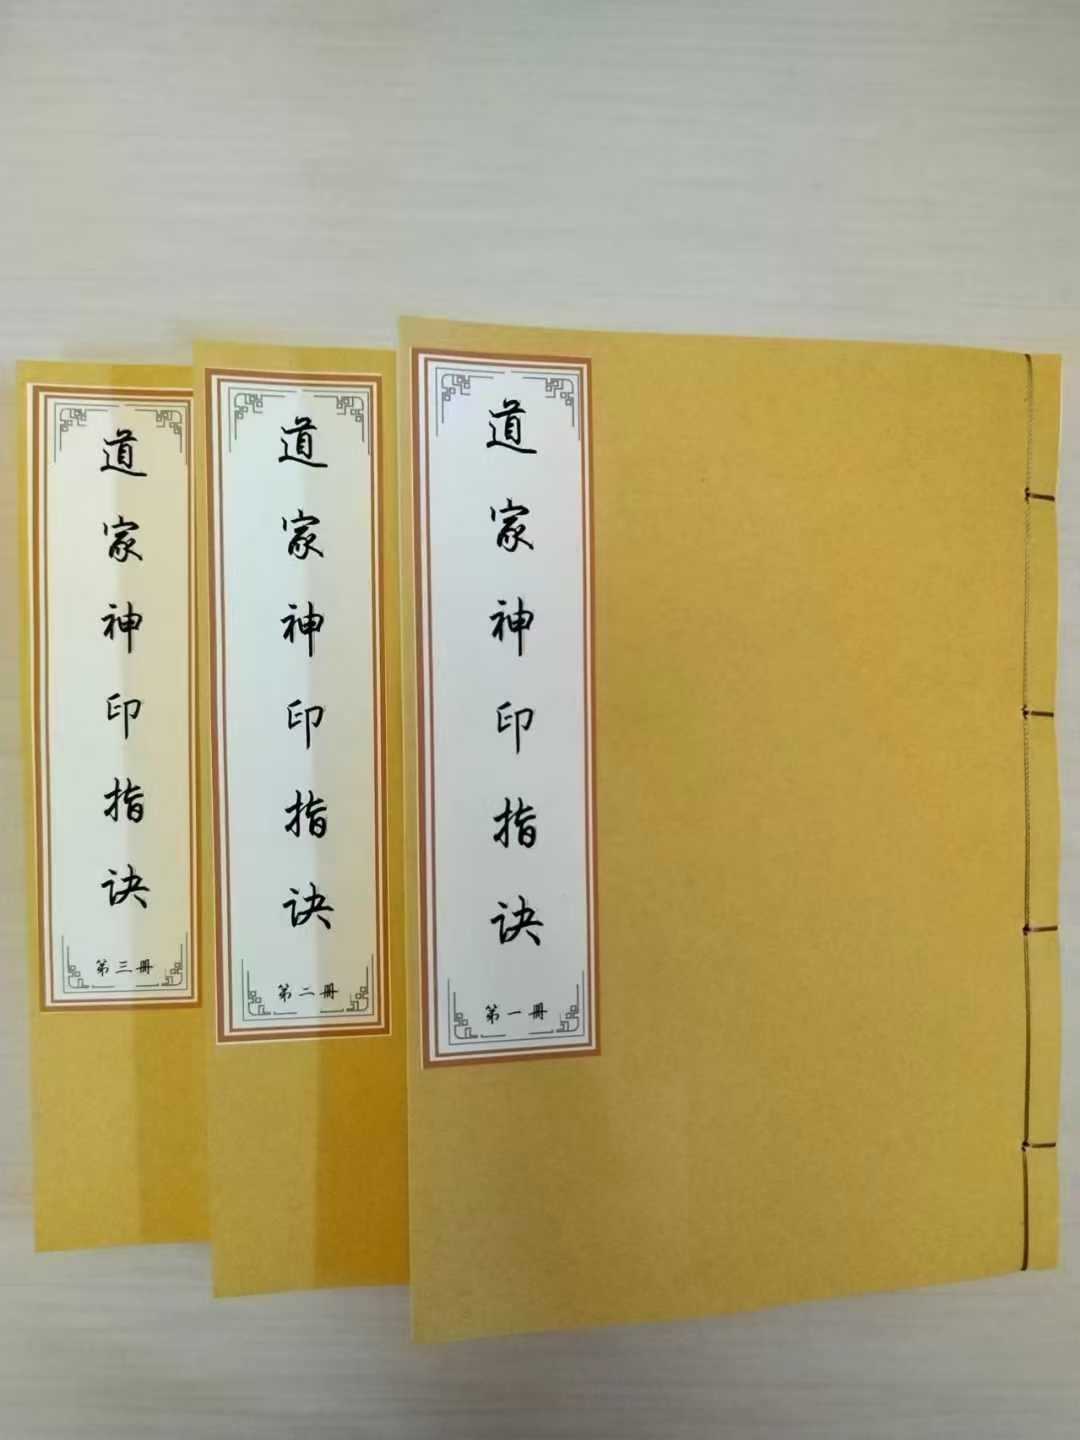 道家神印指诀
第一册
道家神印指诀
第二册
道家神印指诀
第三册